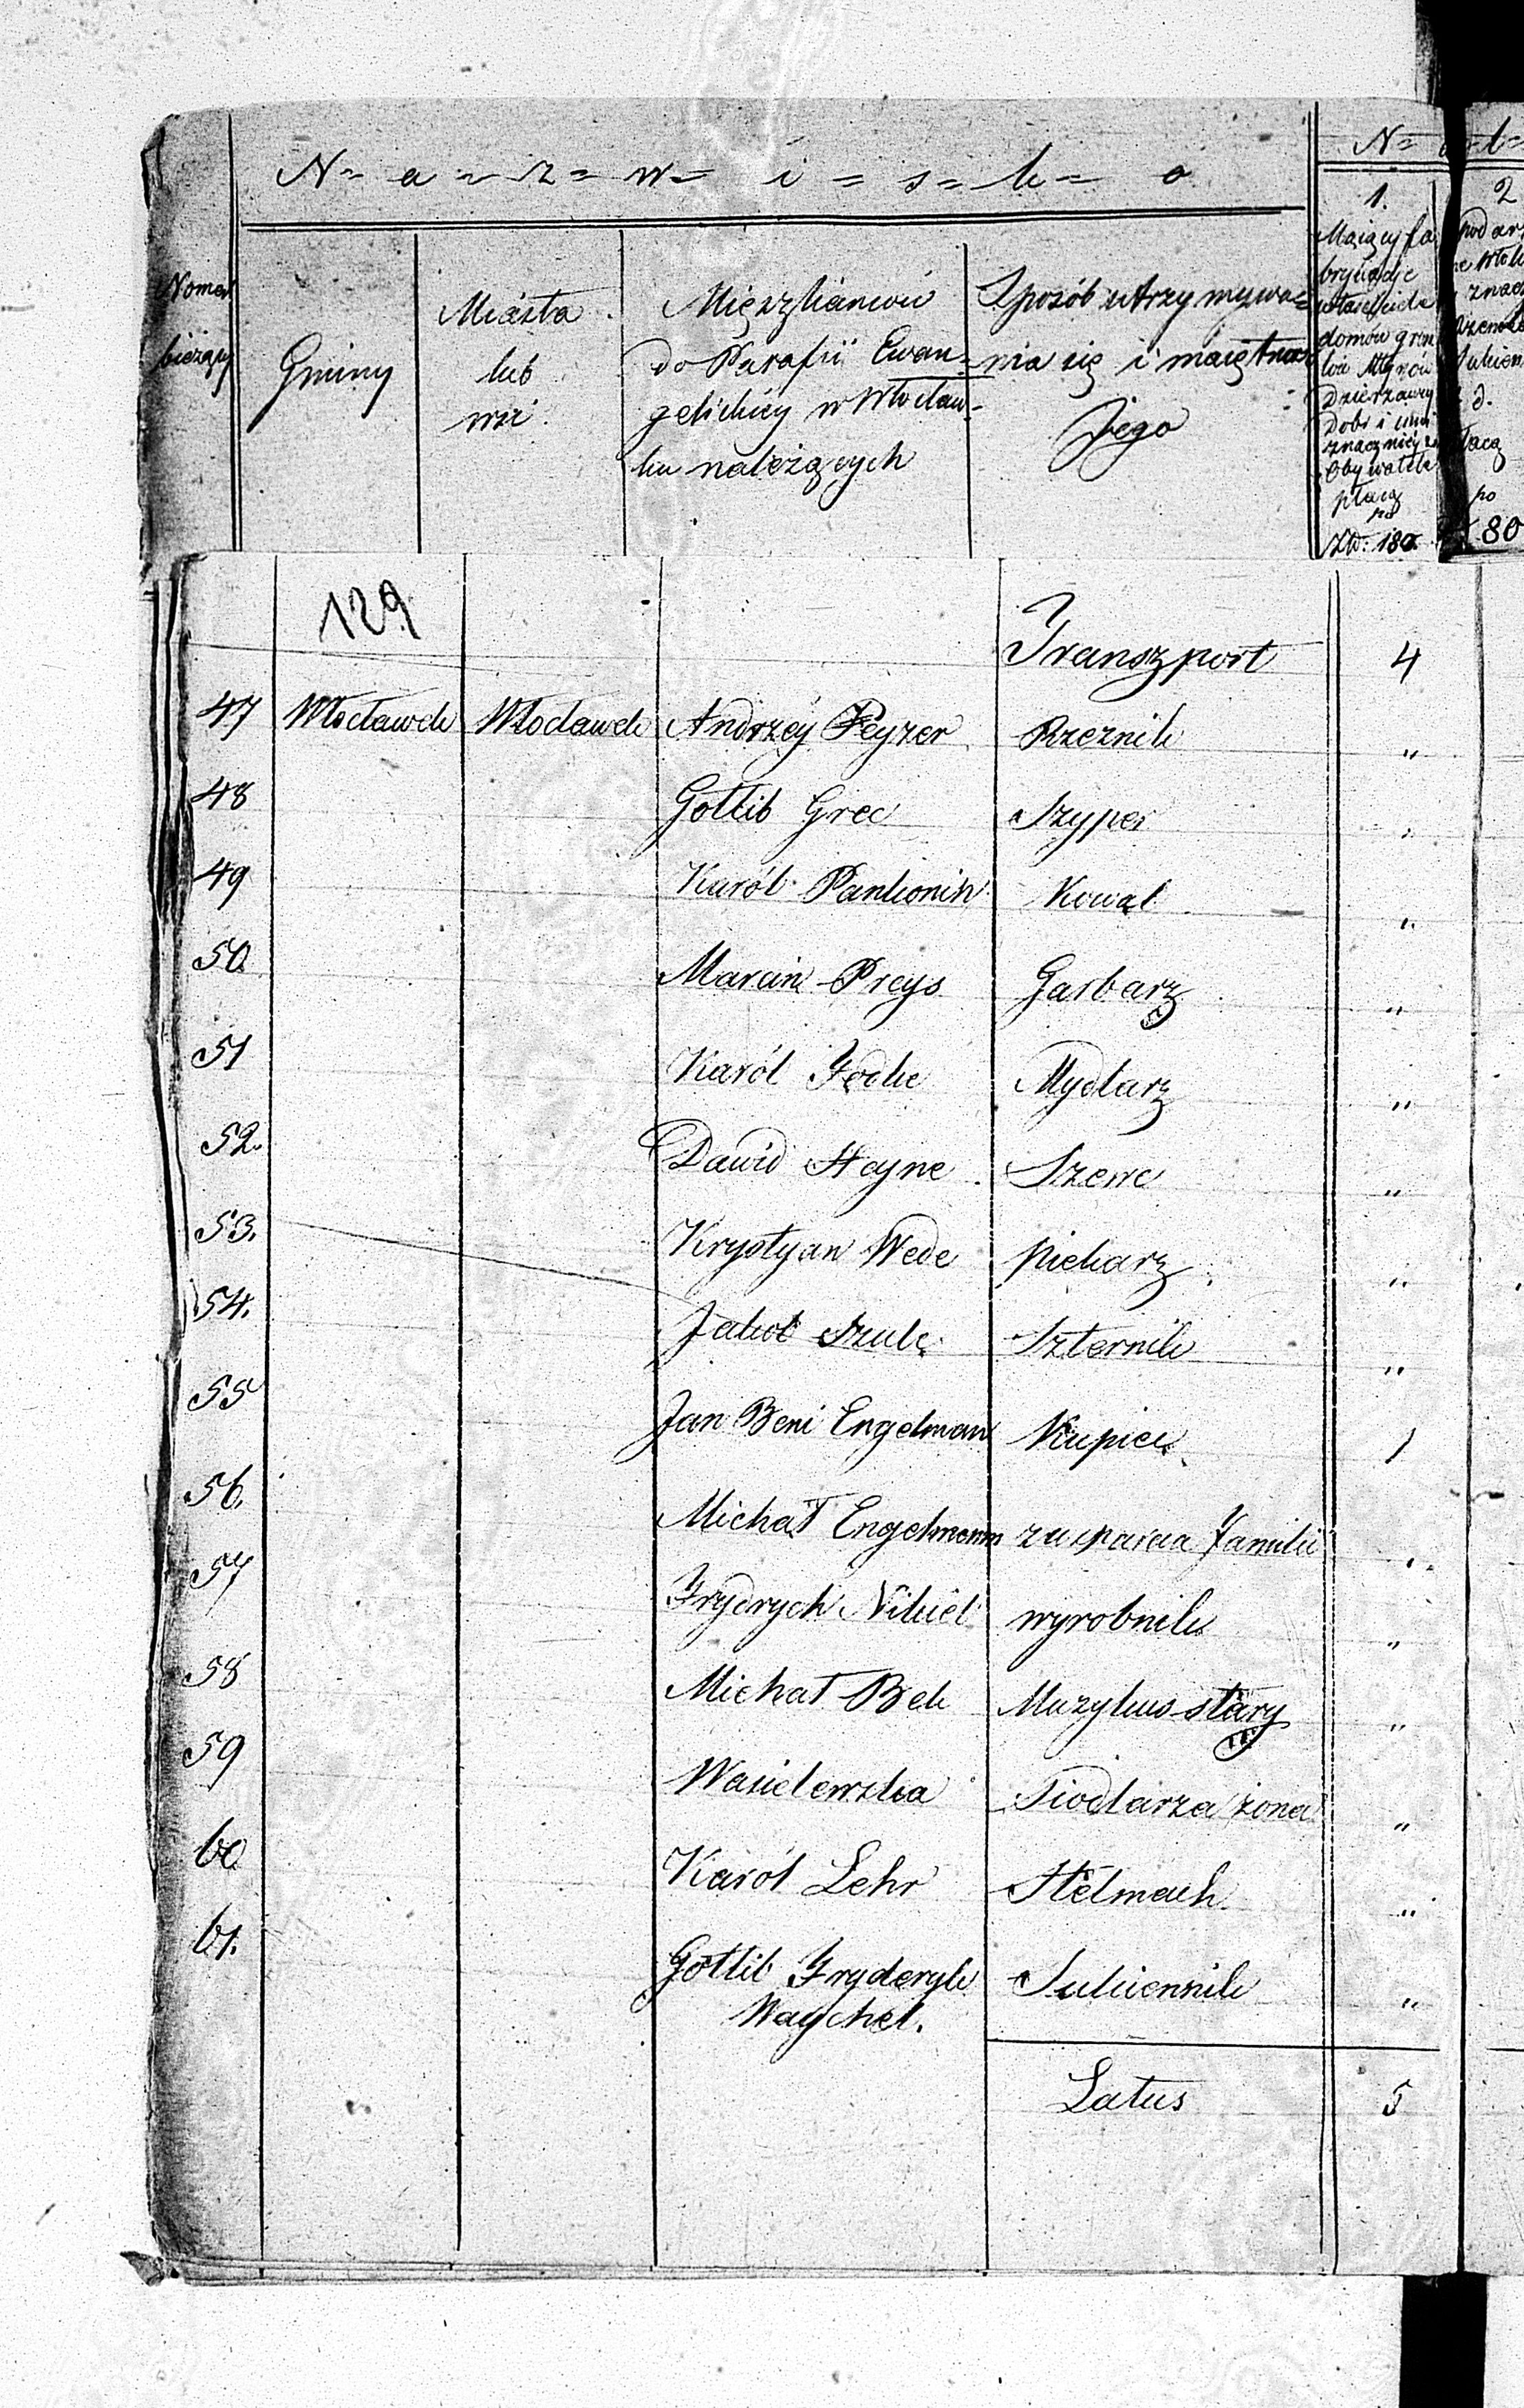 N=a=z=w=i=s=k=o
Numer
bieżący
Gminy
Miasta
lub
wsi
Mięszkańców
do Parafii Ewan=
gelickiey w Włocław=
ku należących
Sposób utrzymywa=
nia się i maiętność
Jego
1.
Maiący fa
brykacje
właściciele
domów grun
tów Młynów
Dzierzawcy
Dobr i inni
znacznieysi
Obywatele
płacą
po
Złp: 180.
2
po
80
129
Transzport 4
47 Włocławek Włocławek Andrzéy Peyzer Rzeznik "
48 Gottlib Grec Szyper "
49 Karól Pankonin Kowal "
50. Marcin Preys Garbarz "
51 Karól Fodke Mydlarz "
52. Dawid Heyne Szewc "
53. Krystyan Wede piekarz "
54. Jakób Szulc Szternik "
55 Jan Beni Engelman Kupiec 1
56. Michał Engelmann zusparcia familii "
57 Frydrych Nikiel wyrobnik "
58 Michał Bek Muzykus stary "
59 Wasielewska Siodlarza żona "
60 Karól Lehr Stelmach "
61. Gottlib Fryderyk Sukiennik "
Waychel.
Latus 5